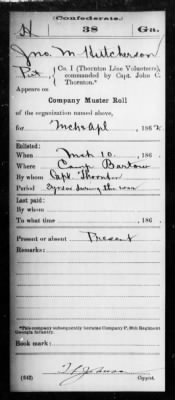 (Confederate.)
H 38 Ga.
Jno. M Hutcherson
Pvt, Co. I (Thornton Line Volunteers),
commanded by Capt. John C.
Thornton.*
Appears on
Company Muster Roll
of the organization named above,
for Mch & Apl, 1862
Enlisted:
When Mch 10, 186 .
Where Camp Bartow
By whom Capt. Thornton
Period 3 years or during the war
Last paid:
By whom
To what time , 186 .
Present or absent Present
Remarks:
*This company subsequently became Company F, 38th Regiment
Georgia Infantry.
(642) Copyist.